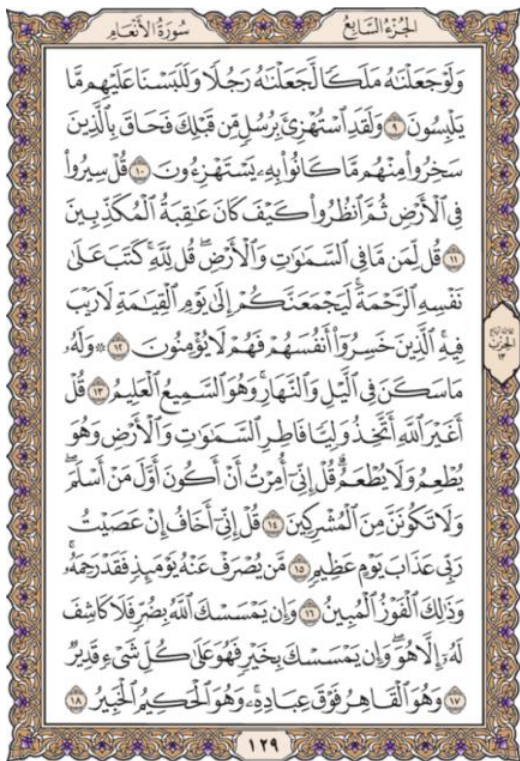 الجُزْءُ السَّابِعُ
سُورَةُ الأَنْعَامِ
وَلَوْ جَعَلْنَٰهُ مَلَكًا لَّجَعَلْنَٰهُ رَجُلًا وَلَلَبَسْنَا عَلَيْهِم مَّا
يَلْبِسُونَ ٩ وَلَقَدِ ٱسْتُهْزِئَ بِرُسُلٍ مِّن قَبْلِكَ فَحَاقَ بِٱلَّذِينَ
سَخِرُوا۟ مِنْهُم مَّا كَانُوا۟ بِهِۦ يَسْتَهْزِءُونَ ١٠ قُلْ سِيرُوا۟
فِى ٱلْأَرْضِ ثُمَّ ٱنظُرُوا۟ كَيْفَ كَانَ عَٰقِبَةُ ٱلْمُكَذِّبِينَ
١١ قُل لِّمَن مَّا فِى ٱلسَّمَٰوَٰتِ وَٱلْأَرْضِ ۖ قُل لِّلَّهِ ۚ كَتَبَ عَلَىٰ
نَفْسِهِ ٱلرَّحْمَةَ ۚ لَيَجْمَعَنَّكُمْ إِلَىٰ يَوْمِ ٱلْقِيَٰمَةِ لَا رَيْبَ
فِيهِ ۚ ٱلَّذِينَ خَسِرُوٓا۟ أَنفُسَهُمْ فَهُمْ لَا يُؤْمِنُونَ ١٢ ۞ وَلَهُۥ
مَا سَكَنَ فِى ٱلَّيْلِ وَٱلنَّهَارِ ۚ وَهُوَ ٱلسَّمِيعُ ٱلْعَلِيمُ ١٣ قُلْ
أَغَيْرَ ٱللَّهِ أَتَّخِذُ وَلِيًّا فَاطِرِ ٱلسَّمَٰوَٰتِ وَٱلْأَرْضِ وَهُوَ
يُطْعِمُ وَلَا يُطْعَمُ ۗ قُلْ إِنِّىٓ أُمِرْتُ أَنْ أَكُونَ أَوَّلَ مَنْ أَسْلَمَ ۖ
وَلَا تَكُونَنَّ مِنَ ٱلْمُشْرِكِينَ ١٤ قُلْ إِنِّىٓ أَخَافُ إِنْ عَصَيْتُ
رَبِّى عَذَابَ يَوْمٍ عَظِيمٍ ١٥ مَّن يُصْرَفْ عَنْهُ يَوْمَئِذٍ فَقَدْ رَحِمَهُۥ ۚ
وَذَٰلِكَ ٱلْفَوْزُ ٱلْمُبِينُ ١٦ وَإِن يَمْسَسْكَ ٱللَّهُ بِضُرٍّ فَلَا كَاشِفَ
لَهُۥٓ إِلَّا هُوَ ۖ وَإِن يَمْسَسْكَ بِخَيْرٍ فَهُوَ عَلَىٰ كُلِّ شَىْءٍ قَدِيرٌ
١٧ وَهُوَ ٱلْقَاهِرُ فَوْقَ عِبَادِهِۦ ۚ وَهُوَ ٱلْحَكِيمُ ٱلْخَبِيرُ ١٨
الحِزْب
١٣
١٢٩